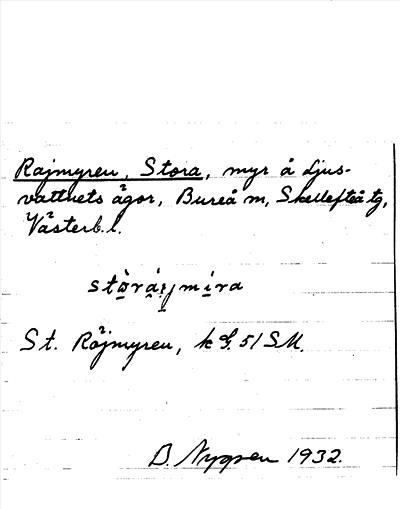 Rajmyren, Stora, myr å Ljus-
vattnets ägor, Bureå m, Skellefteå tg,
Västerb. l.
St. Röjmyren, k 51 SM.
B. Nygren 1932.